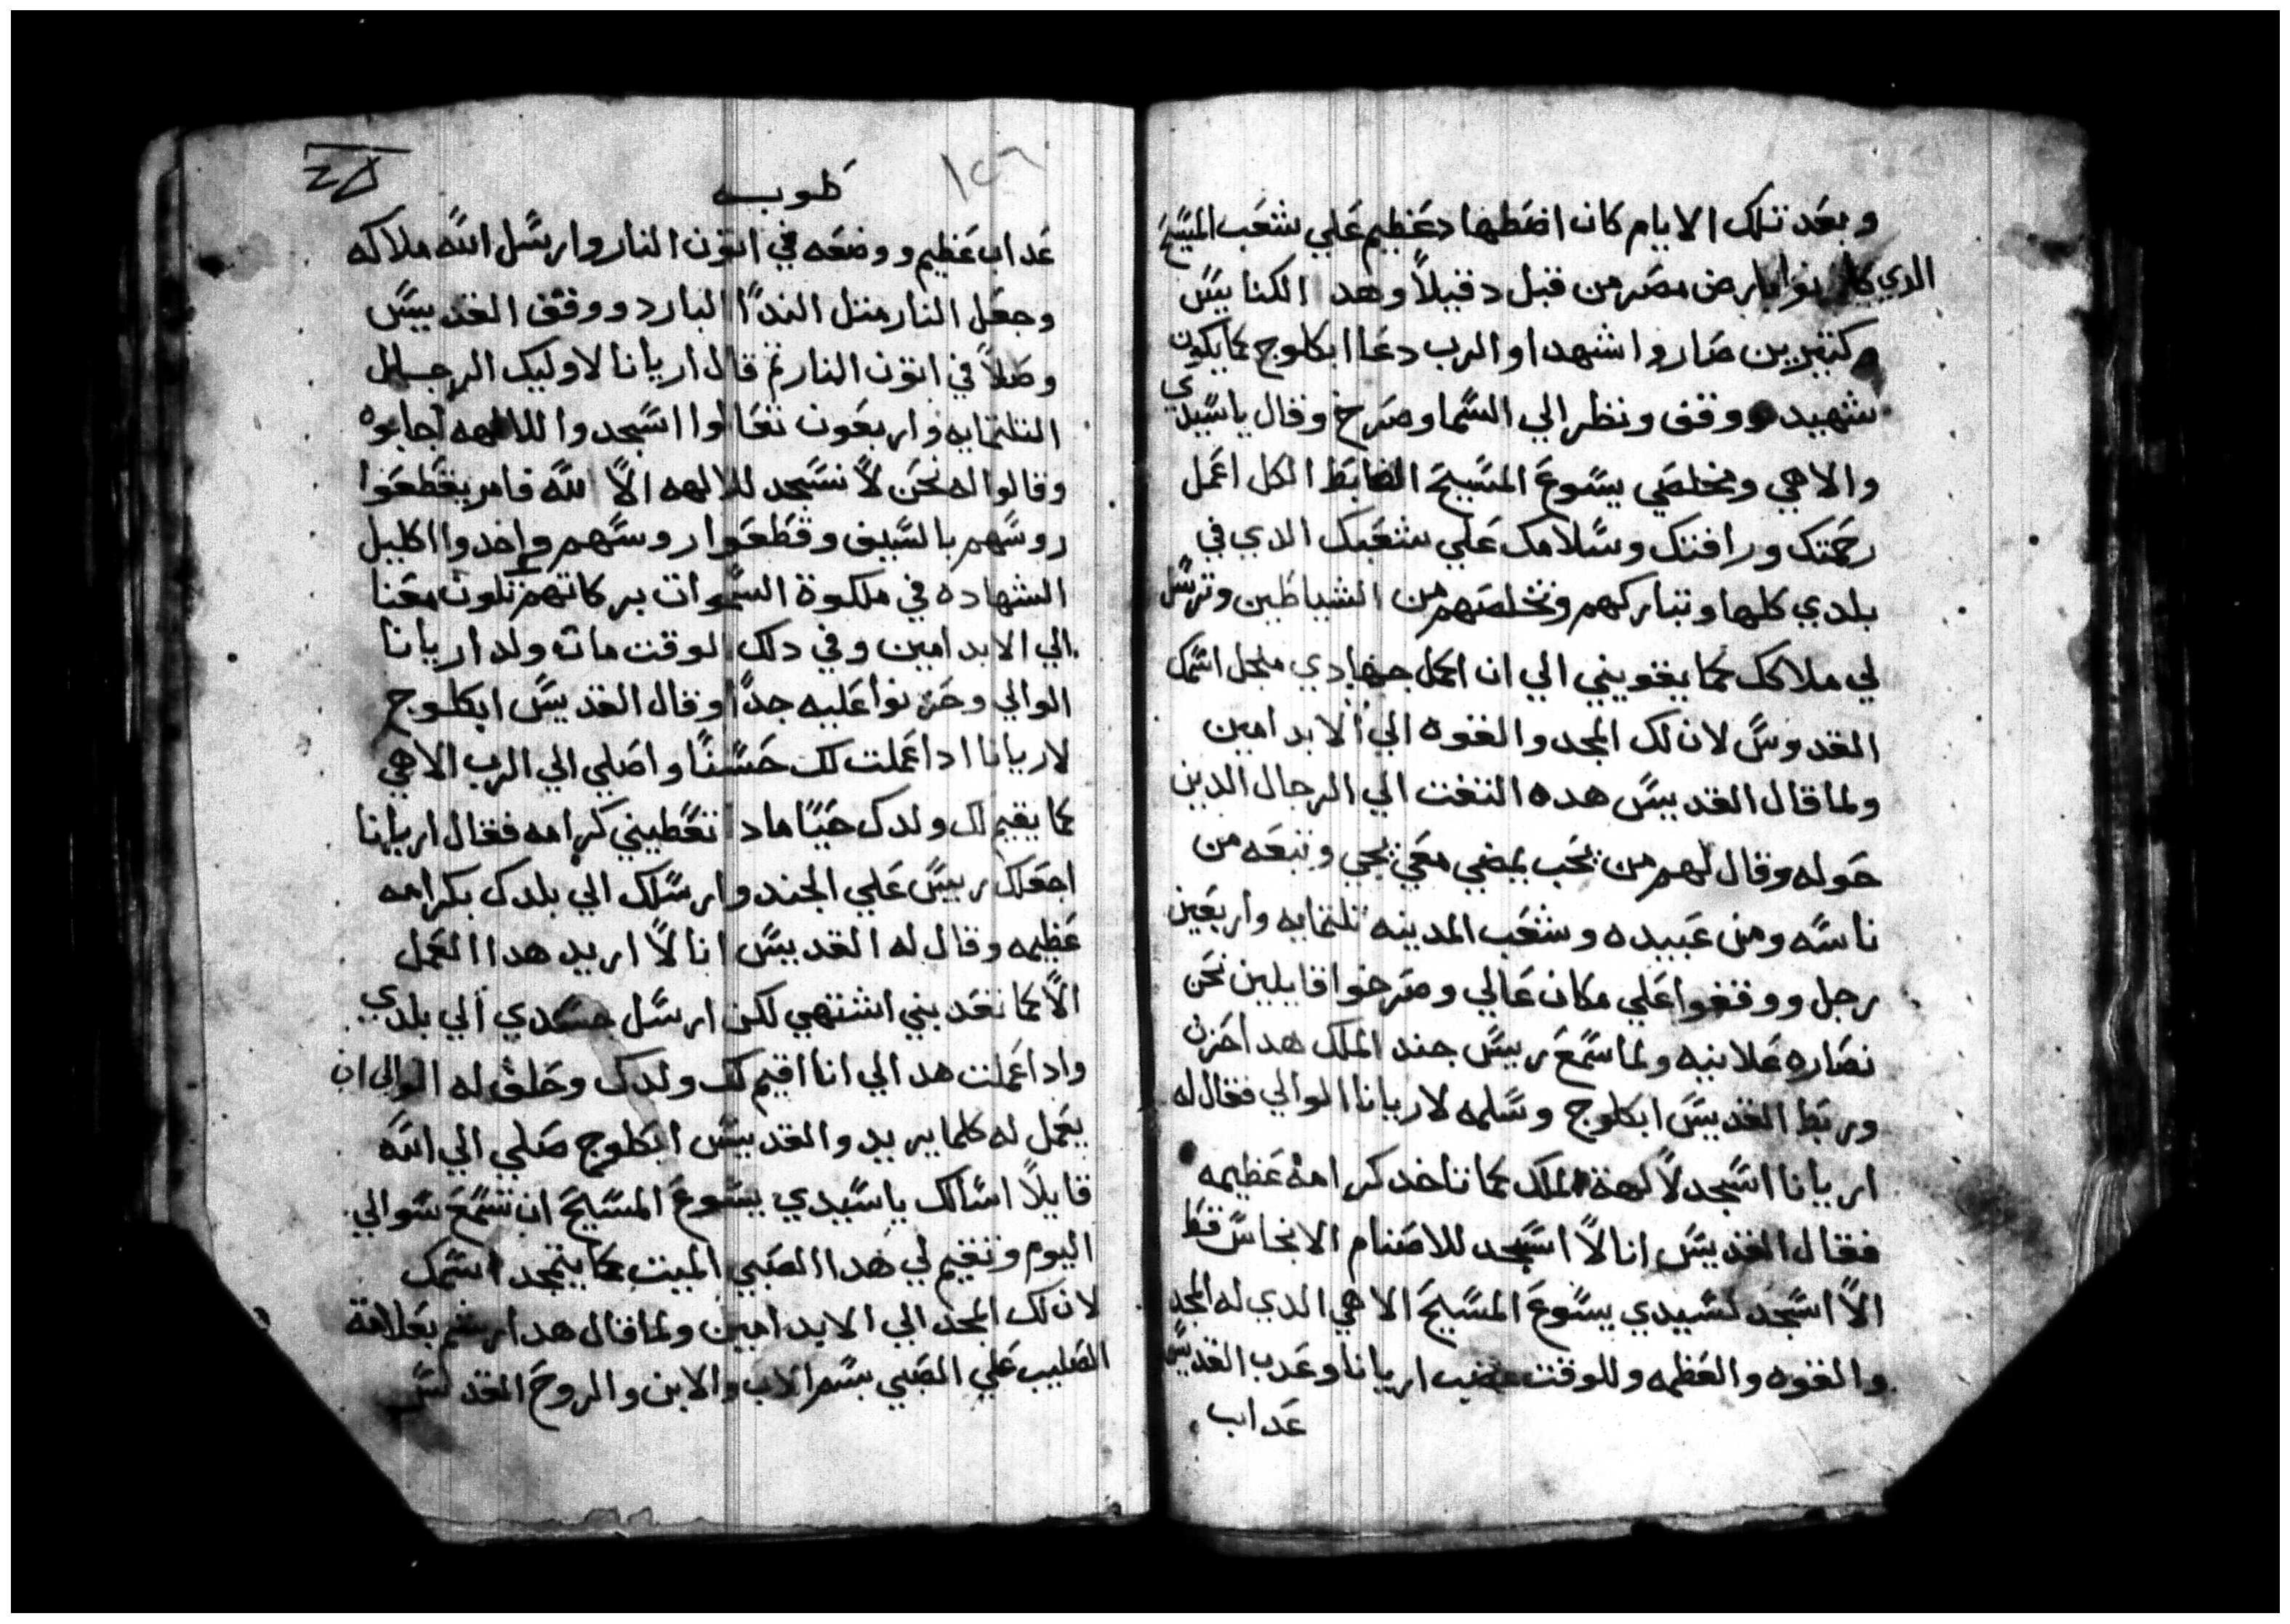 وبعد تلك الايام كان اضطهاد عظيم علي شعب المسيح
الدي كانوا بارض مصر من قبل دقيلاً وهد الكنايس
وكتيرين صاروا شهدا والرب دعا ابكلوج كما يكون
شهيد ووقف ونظر الي السما وصرخ وقال ياسيدي
والاهي ومخلصي يسوع المسيح الضابط الكل اعمل
رحمتك ورافتك وسلامك علي شعبك الدي في
بلدي كلها وتباركهم وتخلصهم من الشياطين وترسل
لي ملاكك كما يقويني الي ان اكمل جهادي منجل اسمك
القدوس لان لك المجد والقوه الي الابد امين
ولما قال القديس هده التفت الي الرجال الدين
حوله وقال لهم من يحب يمضي معي يجي وتبعه من
ناسه ومن عبيده وشعب المدينه تلتمايه واربعين
رجل ووقفوا علي مكان عالي وصرخوا قايلين نحن
نصاره علانيه ولما سمع ريس جند الملك هدا حزن
وربط القديس ابكلوج وسلمه لاريانا الوالي فقال له
اريانا اسجد لالهة الملك كما تاخد كرامه عظيمه
فقال القديس انا لا اسجد للاصنام الانجاس قط
الا اسجد لسيدي يسوع المسيح الاهي الدي له المجد
والقوه والعظمه وللوقت غضب اريانا وعدب القديس
عداب
طوبه
١٥٦
عداب عظيم ووضعه في اتون النار وارسل الله ملاكه
وجعل النار متل الندا البارد ووقف القديس
وصلا في اتون النار تم قال اريانا لاوليك الرجال
التلتمايه واربعون تعالوا اسجدوا للالهه اجابوه
وقالوا له نحن لا نسجد للالهه الا الله فامر يقطعوا
روسهم بالسيف وقطعوا روسهم واخدوا اكليل
الشهاده في ملكوة السموات بركاتهم تكون معنا
الي الابد امين وفي دلك الوقت مات ولد اريانا
الوالي وحزنوا عليه جداً وقال القديس ابكلوج
لاريانا ادا عملت لك حسنًا واصلي الي الرب الاهي
كما يقيم لك ولدك حيًا مادا تعطيني كرامه فقال اريانا
اجعلك ريس علي الجند وارسلك الي بلدك بكرامه
عظيمه وقال له القديس انا لا اريد هدا العمل
الا كما تعدبني اشتهي لكن ارسل جسدي الي بلدي
وادا عملت هدا لي انا اقيم لك ولدك وحلف له الوالي ان
يعمل له كلما يريد والقديس ابكلوج صلي الي الله
قايلاً اسالك ياسيدي يسوع المسيح ان تسمع سوالي
اليوم وتقيم لي هدا الصبي الميت كما يتمجد اسمك
لان لك المجد الي الابد امين ولما قال هدا رشم بعلامة
الصليب علي الصبي بسم الاب والابن والروح القدس